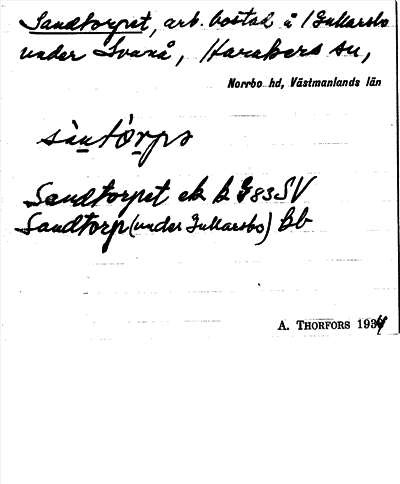 Sandtorpet, arb. bostad å Gullarsbo
under Svanå, Haraker sn,
Norrbo hd, Västmanlands län
sàntórps
Sandtorpet ek b G83SV
Sandtorp (under Gullarsbo) Bb
A. THORFORS 1934